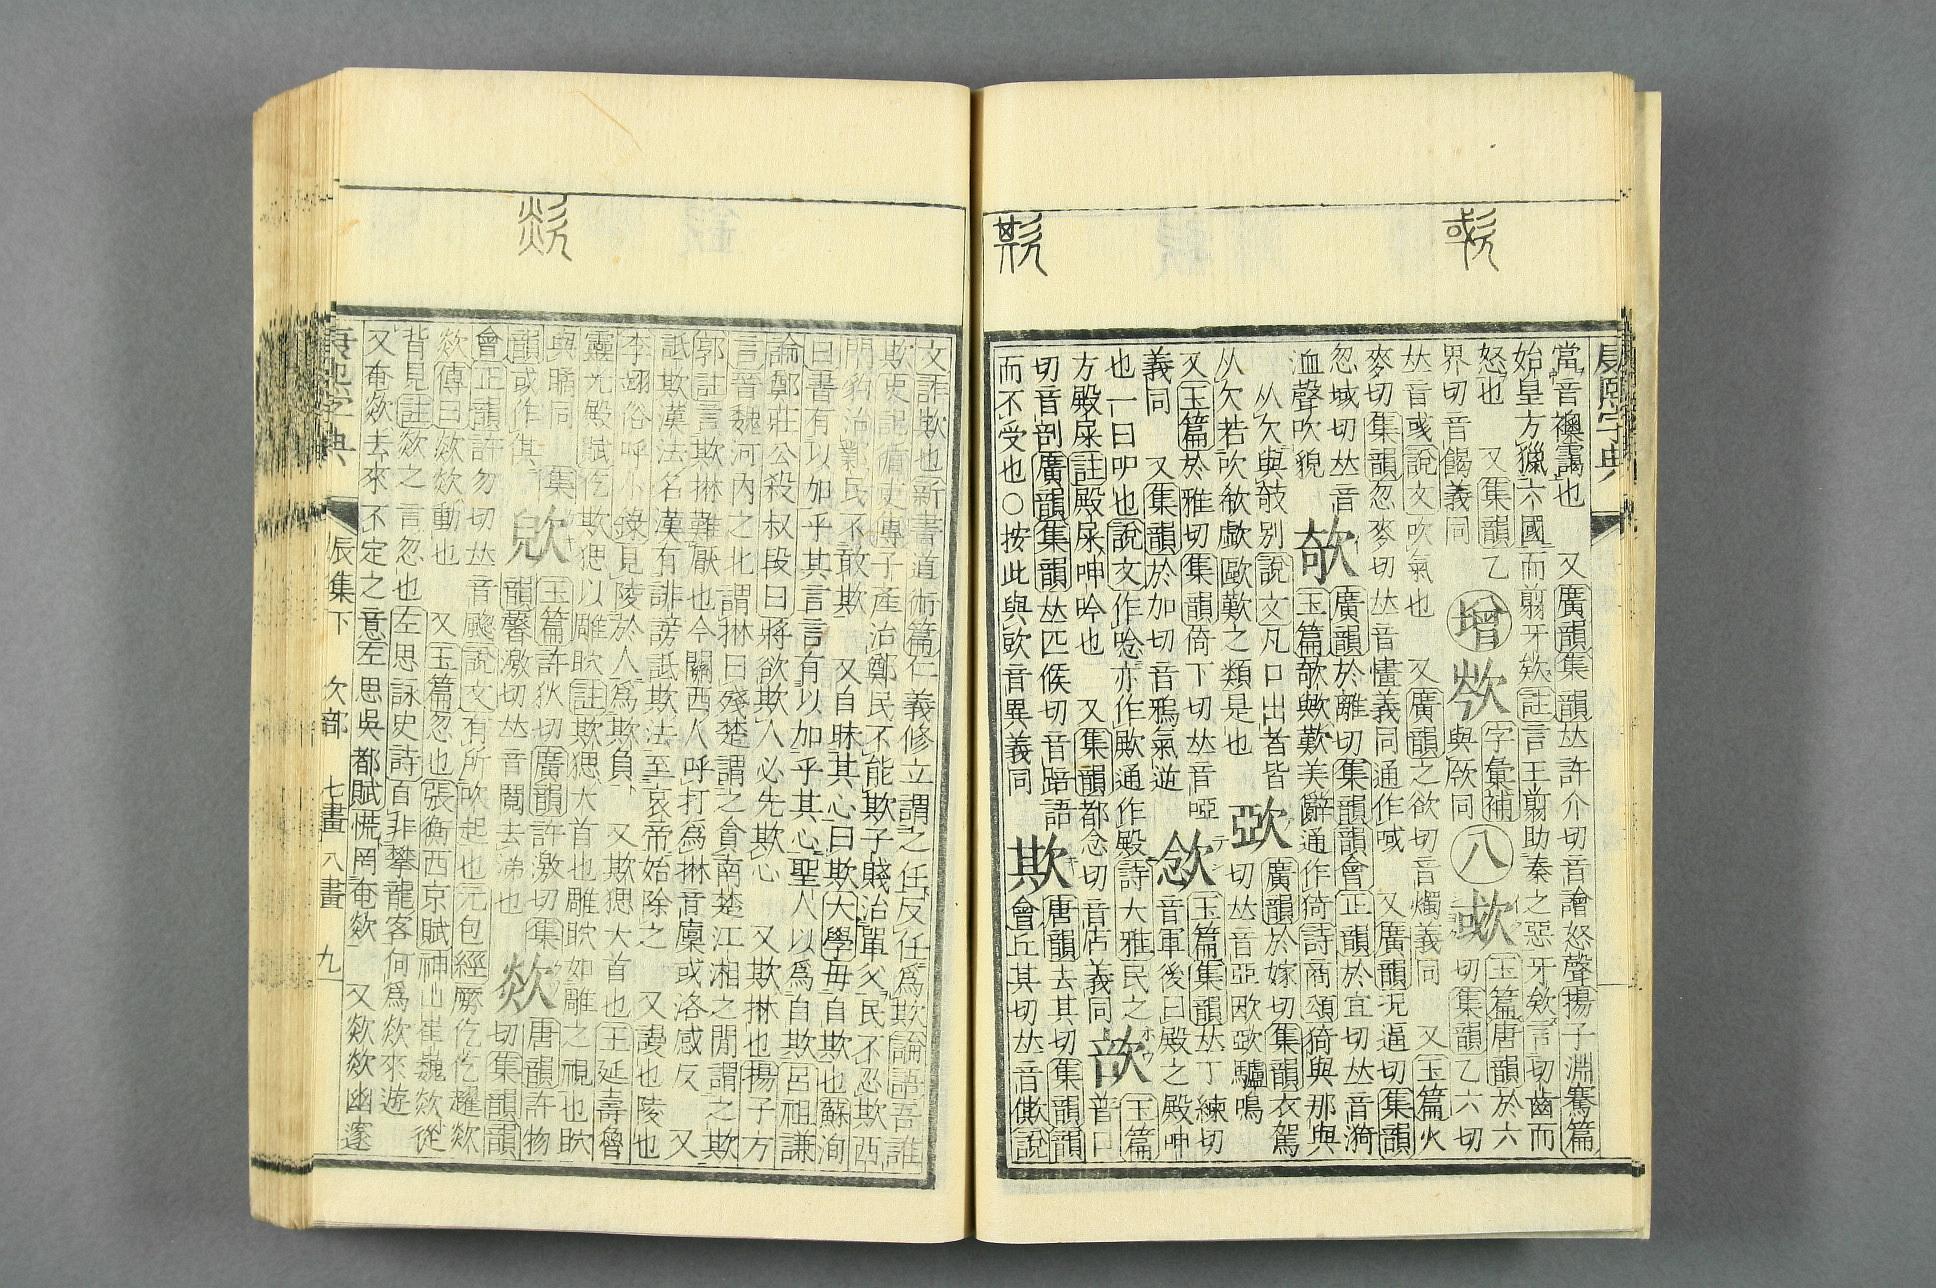 康熙字典
當音襖靄也 又廣韻集韻𠀤許介切音譮怒聲揚子淵騫篇
始皇方獵六國而翦牙欸註言王翦助秦之惡牙欸言切齒而
怒也 又集韻乙 增 字彙補 八 欼 玉篇唐韻於六
界切音餲義同 與欮同 切集韻乙六切
𠀤音彧說文吹氣也 又廣韻之欲切音燭義同 又玉篇火
麥切集韻忽麥切𠀤音㦎義同通作㖪 又廣韻況逼切集韻
忽域切𠀤音 欹 廣韻於離切集韻韻會正韻於宜切𠀤音漪
洫聲吹貌 玉篇欹歟歎美辭通作猗詩商頌猗與那與
从欠與攲别說文凡口出者皆 㰳 廣韻於嫁切集韻衣駕
从欠若吹欱歔歐歎之類是也 切𠀤音亞㰶㰳驢鳴
又玉篇於雅切集韻倚下切𠀤音啞 㰼 玉篇集韻𠀤丁練切
義同 又集韻於加切音鴉氣逆 音軍後曰殿之殿呻
也一曰吚也說文作唸亦作㰼通作殿詩大雅民之
方殿屎註殿屎呻吟也 又集韻都念切音店義同 㰴 玉篇
切音剖廣韻集韻𠀤匹候切音踣語 欺 唐韻去其切集韻韻
而不受也○按此與㰴音異義同 會丘其切𠀤音僛說
文詐欺也新書道術篇仁義修立謂之任反任爲欺論語吾誰
欺史記循吏傳子產治鄭民不能欺子賤治單父民不忍欺西
門豹治鄴民不敢欺 又自昧其心曰欺大學毋自欺也蘇洵
曰書有以加乎其言言有以加乎其心聖人以爲自欺呂祖謙
論鄭莊公殺叔段曰將欲欺人必先欺心 又欺惏也揚子方
言晉魏河內之北謂惏曰殘楚謂之貪南楚江湘之閒謂之欺
郭註言欺惏難厭也今關西人呼打爲惏音廩或洛感反 又
詆欺漢法名漢有誹謗詆欺法至哀帝始除之 又謾也陵也
李翊俗呼小錄見陵於人爲欺負 又欺𤟧大首也王延壽魯
靈光殿賦仡欺𤟧以雕䀏註欺𤟧大首也雕䀏如雕之視也䀏
與䁂同 集 玉篇許狄切廣韻許激切集 唐韻許物
韻或作其 韻馨激切𠀤音鬩去涕也 欻 切集韻韻
會正韻許勿切𠀤音颮說文有所吹起也元包經厥仡仡躍欻
欻傳曰欻欻動也 又玉篇忽也張衡西京賦神山崔巍欻從
背見註欻之言忽也左思詠史詩自非攀龍客何爲欻來遊
又奄欻去來不定之意左思吳都賦慌罔奄欻 又欻欻幽邃
康熙字典 辰集下 欠部 七畫 八畫 九